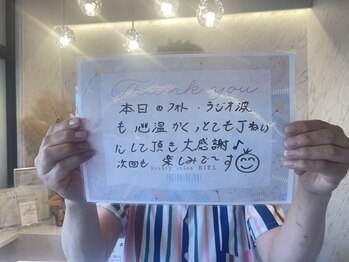 Thank you
本日のフォト・ラジオ波
も心温かく、とても丁ねい
にして頂き大感謝♪
次回も楽しみで〜す
beauty salon RIEL